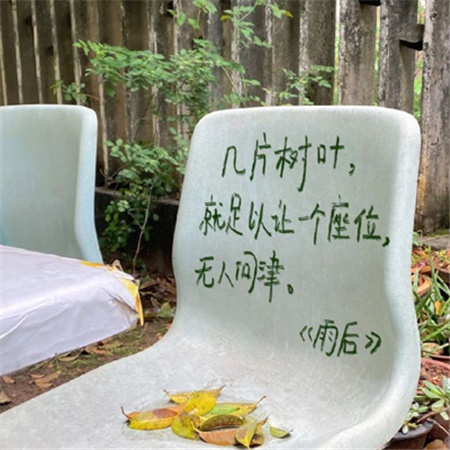 几片树叶，
就足以让一个座位，
无人问津。
《雨后》